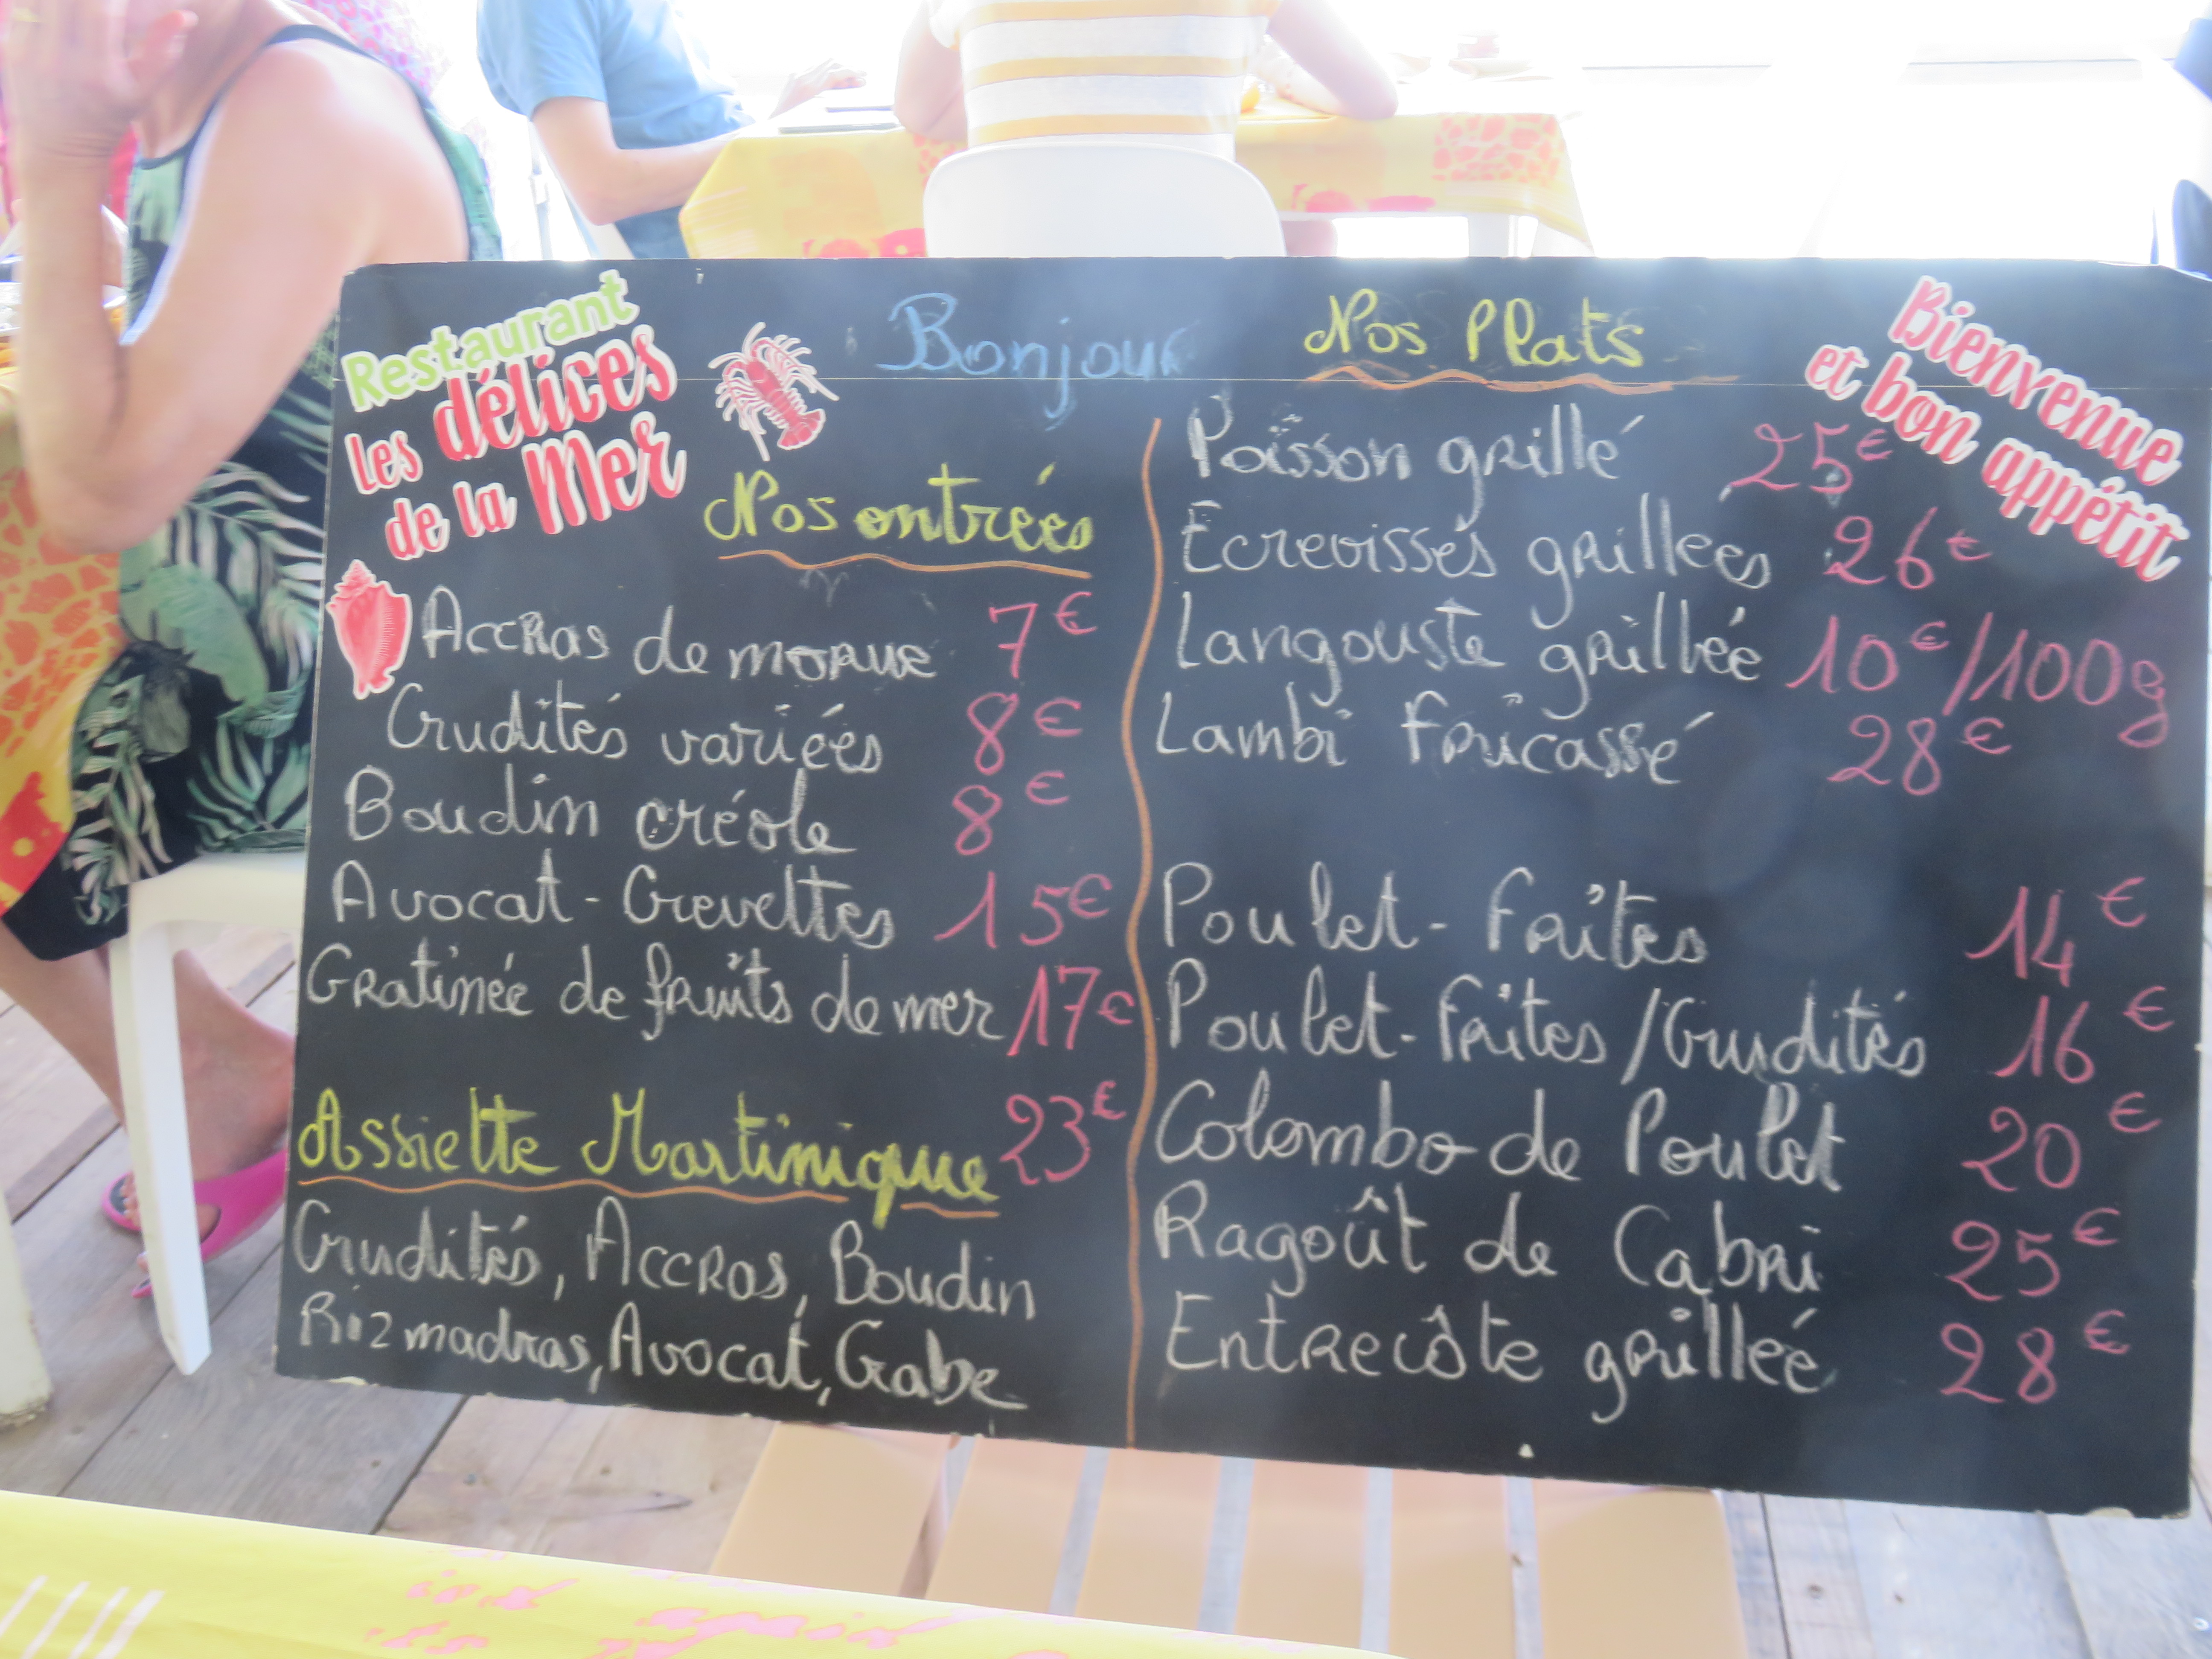 Restaurant
les délices
de la Mer
Bonjour
Nos entrées
Accras de morue 7€
Crudités variées 8€
Boudin créole 8€
Avocat - Crevettes 15€
Gratinée de fruits de mer 17€
Assiette Martinique 23€
Crudités, Accras, Boudin
Riz madras, Avocat, Crabe
Nos Plats
Bienvenue
et bon appétit
Poisson grillé 25€
Ecrevisses grillees 26€
Langouste grillée 10€/100g
Lambi fricassé 28€
Poulet - frites 14€
Poulet - frites / Crudités 16€
Colombo de Poulet 20€
Ragoût de Cabri 25€
Entrecôte grillée 28€